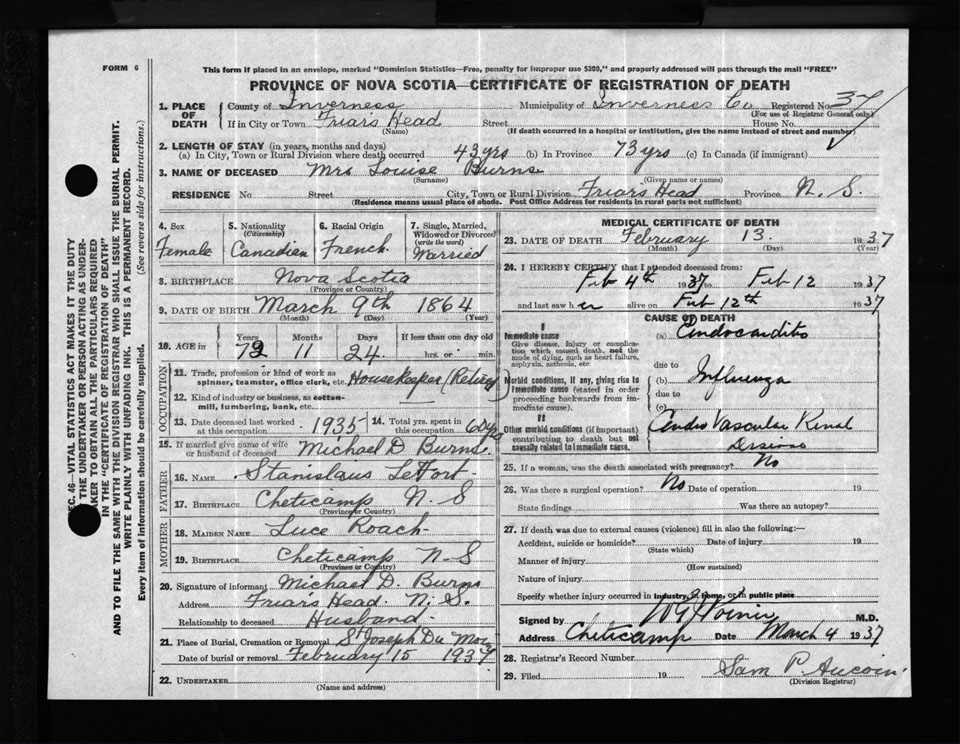 FORM 6
This form if placed in an envelope, marked "Dominion Statistics—Free, penalty for improper use $300," and properly addressed will pass through the mail "FREE"
PROVINCE OF NOVA SCOTIA—CERTIFICATE OF REGISTRATION OF DEATH
1. PLACE OF DEATH County of Inverness Municipality of Inverness Co Registered No. 37
(For use of Registrar General only)
If in City or Town Friar's Head Street House No.
(Name) (If death occurred in a hospital or institution, give the name instead of street and number)
2. LENGTH OF STAY (in years, months and days)
(a) In City, Town or Rural Division where death occurred 43 yrs (b) In Province 73 yrs (c) In Canada (if immigrant)
3. NAME OF DECEASED Mrs Louise Burns
(Surname) (Given name or names)
RESIDENCE No. Street City, Town or Rural Division Friars Head Province N. S.
(Residence means usual place of abode. Post Office Address for residents in rural parts not sufficient)
4. Sex Female
5. Nationality (Citizenship) Canadian
6. Racial Origin French
7. Single, Married, Widowed or Divorced (write the word) Married
8. BIRTHPLACE Nova Scotia
(Province or Country)
9. DATE OF BIRTH March 9th 1864
(Month) (Day) (Year)
10. AGE in Years 72 Months 11 Days 24 If less than one day old hrs. or min.
OCCUPATION
11. Trade, profession or kind of work as spinner, teamster, office clerk, etc. Housekeeper (Retired)
12. Kind of industry or business, as cotton-mill, lumbering, bank, etc.
13. Date deceased last worked at this occupation 1935
14. Total yrs. spent in this occupation 60 yrs
15. If married give name of wife or husband of deceased Michael D Burns
FATHER
16. NAME Stanislaus LeFort
17. BIRTHPLACE Cheticamp N. S
(Province or Country)
MOTHER
18. MAIDEN NAME Luce Roach
19. BIRTHPLACE Cheticamp N. S
(Province or Country)
20. Signature of informant Michael D. Burns
Address Friar's Head. N. S.
Relationship to deceased Husband
21. Place of Burial, Cremation or Removal St Joseph Du Moi
Date of burial or removal February 15 1937
22. UNDERTAKER
(Name and address)
MEDICAL CERTIFICATE OF DEATH
23. DATE OF DEATH February 13 1937
(Month) (Day) (Year)
24. I HEREBY CERTIFY that I attended deceased from:
Feb 4th 1937 to Feb 12 1937
and last saw her alive on Feb 12th 1937
CAUSE OF DEATH
I
Immediate cause
Give disease, injury or complication which caused death, not the mode of dying, such as heart failure, asphyxia, asthenia, etc
(a) Endocarditis
due to
Morbid conditions, if any, giving rise to immediate cause (stated in order proceeding backwards from immediate cause).
(b) Influenza
due to
(c)
II
Other morbid conditions (if important) contributing to death but not causally related to immediate cause.
Cardio Vascular Renal
25. If a woman, was the death associated with pregnancy? No
26. Was there a surgical operation? No Date of operation 19
State findings Was there an autopsy?
27. If death was due to external causes (violence) fill in also the following:—
Accident, suicide or homicide? Date of injury 19
(State which)
Manner of injury
(How sustained)
Nature of injury
Specify whether injury occurred in industry, in home, or in public place
Signed by M.D.
Address Cheticamp Date March 4 1937
28. Registrar's Record Number
29. Filed 19 Sam P. Aucoin
(Division Registrar)
SEC. 46—VITAL STATISTICS ACT MAKES IT THE DUTY
THE UNDERTAKER OR PERSON ACTING AS UNDER-
TAKER TO OBTAIN ALL THE PARTICULARS REQUIRED
IN THE "CERTIFICATE OF REGISTRATION OF DEATH"
AND TO FILE THE SAME WITH THE DIVISION REGISTRAR WHO SHALL ISSUE THE BURIAL PERMIT.
WRITE PLAINLY WITH UNFADING INK. THIS IS A PERMANENT RECORD.
Every item of information should be carefully supplied. (See reverse side for instructions.)